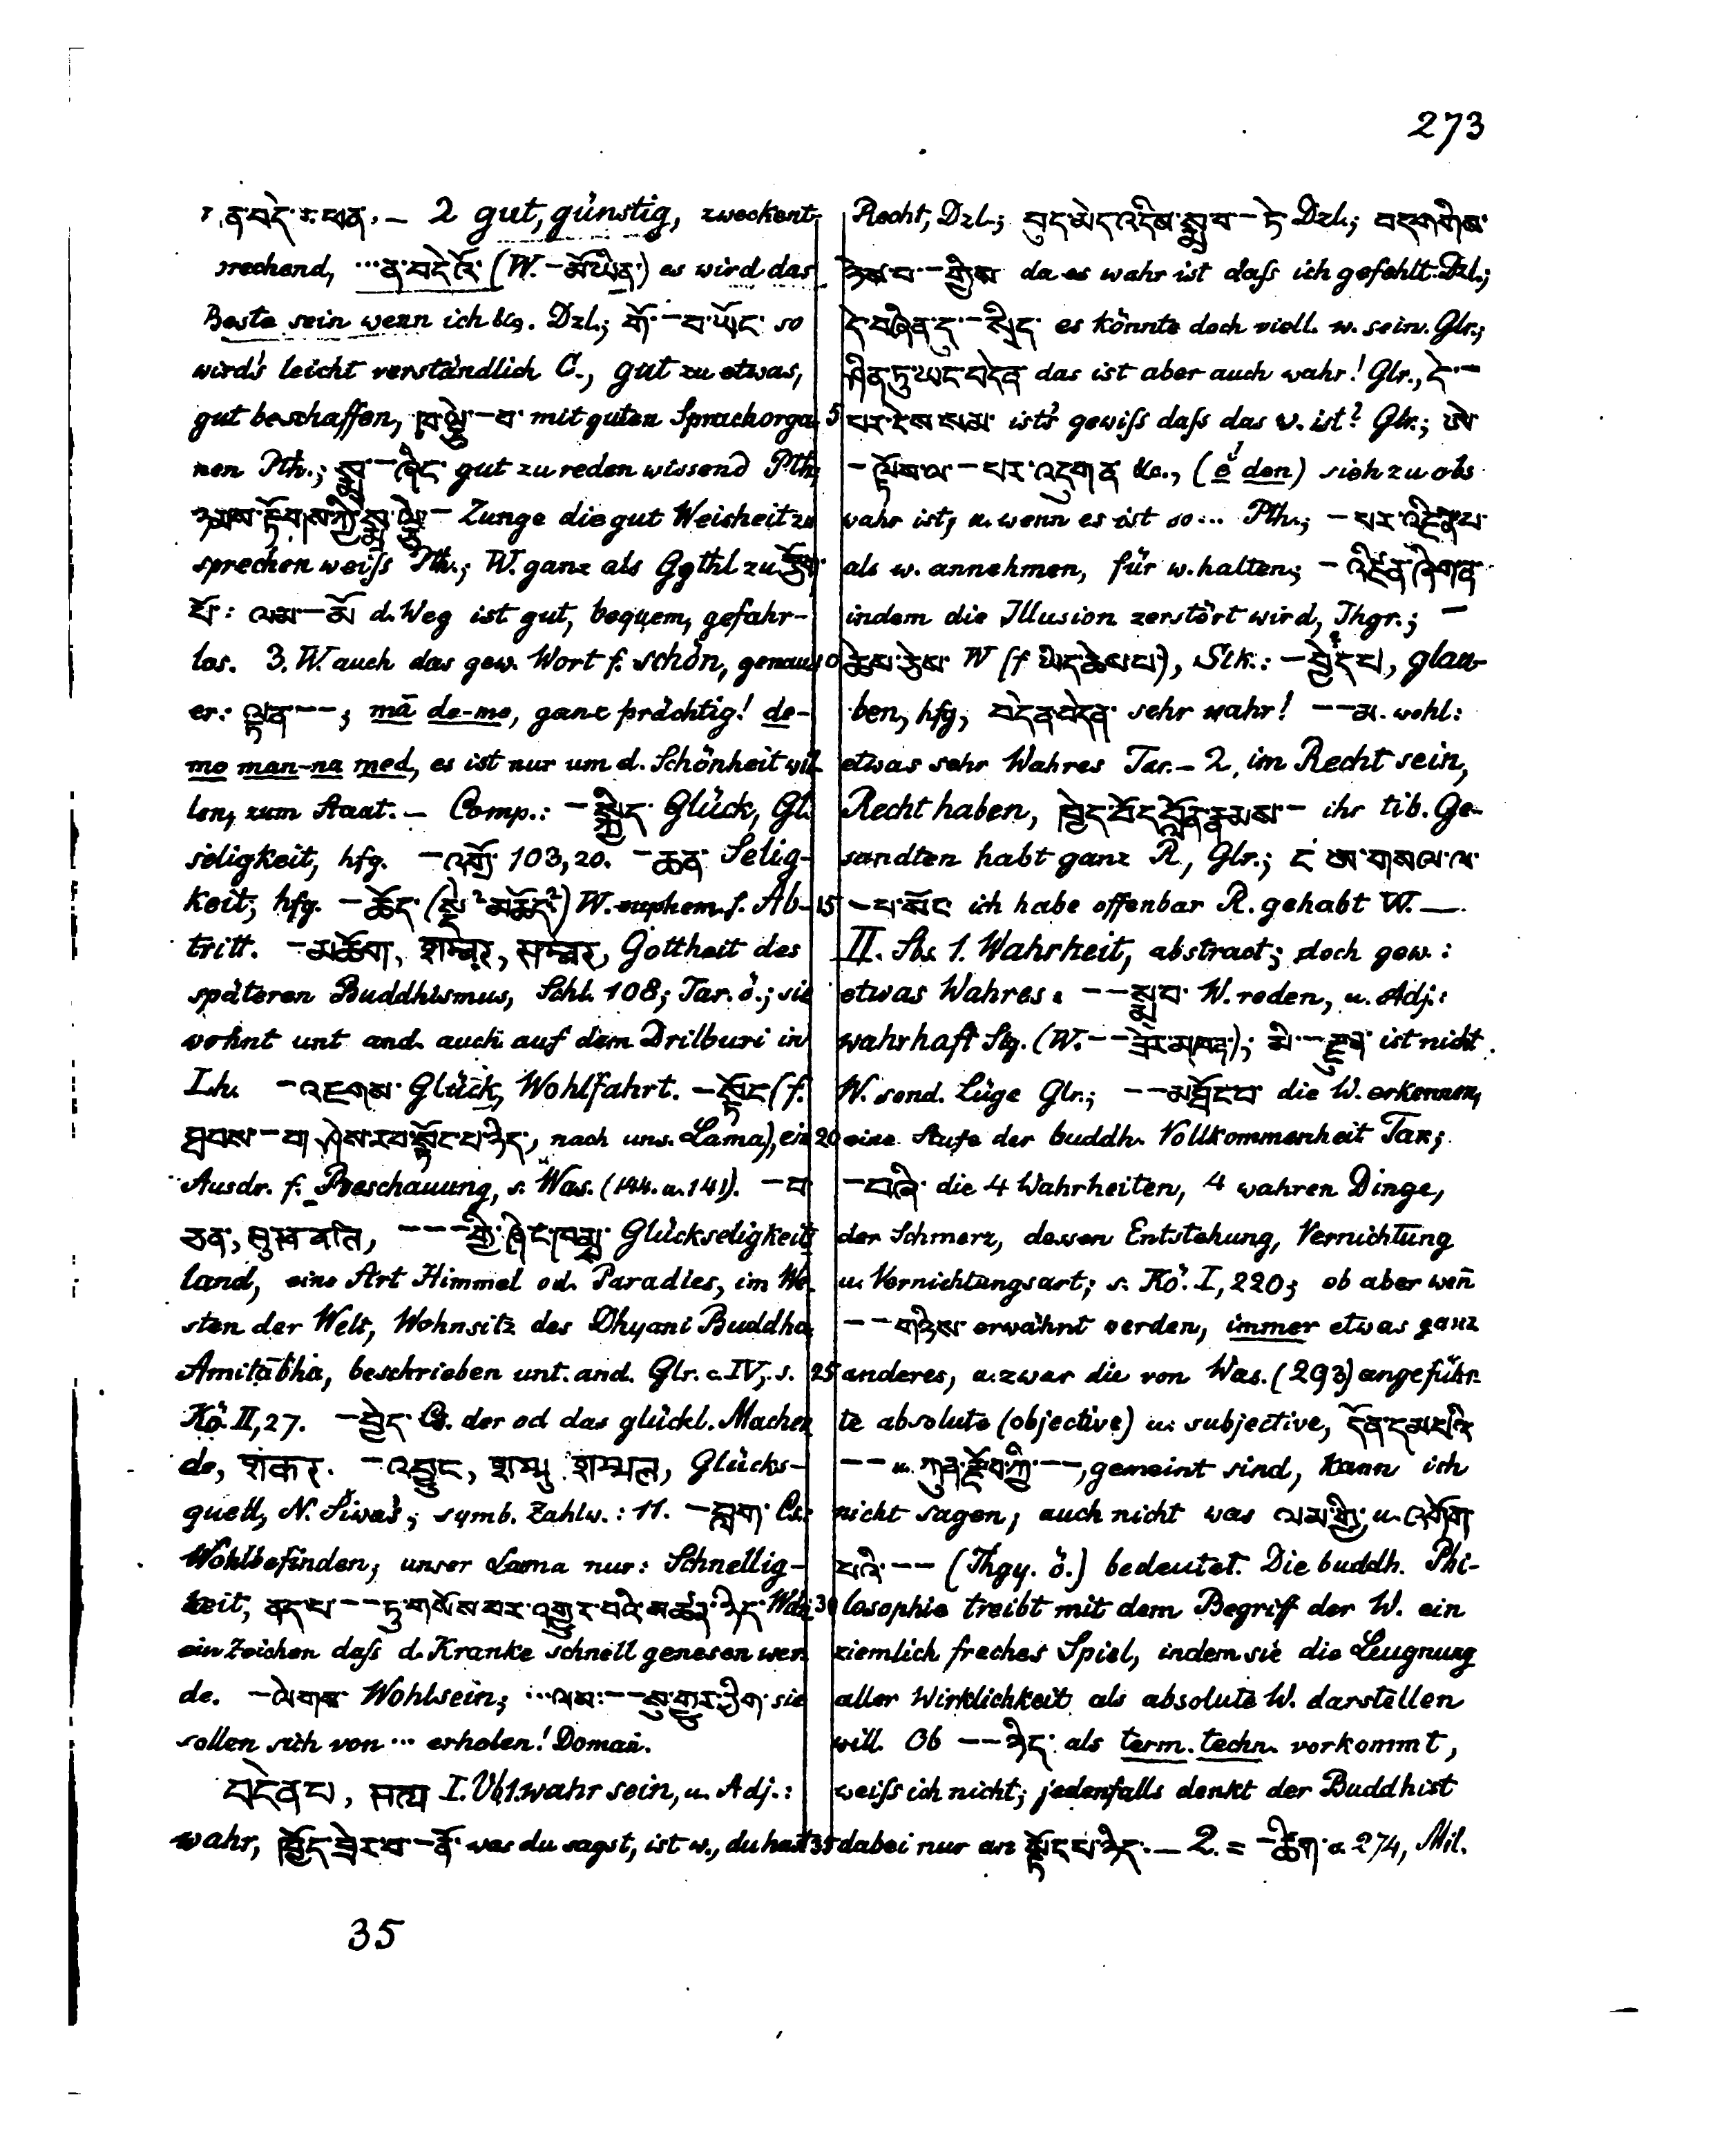 273
ན་བདེ་ ཕན, – 2 gut, günstig, zweckent-
rechend, …ན་བདེའོ་ (W. –མོ་ཡིན་) es wird das
Beste sein wenn ich &c. Dzl.; གོ་–བ་ཡོང་ so
wird's leicht verständlich C., gut zu etwas,
gut beschaffen, ཁ་ལྕེ་–བ་ mit guten Sprachorga-
nen Pth.; སྨྲ་–ཞིང་ gut zu reden wissend Pth;
ཉམས་རྟོགས་ཀྱི་སྨྲ་ལྕེ་– Zunge die gut Weisheit zu
sprechen weiſs Pth.; W. ganz als Ggthl zu
པོ་: ལམ་–མོ་ d. Weg ist gut, bequem, gefahr-
los. 3. W. auch das gew. Wort f. schön, genau-
er: ལྟན་––; mā de-mo, ganz prächtig! de-
mo man-na med, es ist nur um d. Schönheit wil-
len, zum Staat. – Comp.: –སྐྱིད་ Glück, Gl.
seligkeit, hfg. –འགྲོ་ 103,20. –ཆེན་ Selig-
keit, hfg. –ཆོད་ W. euphem. f. Ab-
tritt. –མཆོག, शम्बर, सम्बर, Gottheit des
späteren Buddhismus, Schl. 108; Tar. ö.; sie
wohnt unt and. auch auf dem Drilburi in
Lh. –འཇགས་ Glück, Wohlfahrt. –སྟོང་ (f.
ཐབས་–བ་ ཤེས་རབ་སྟོང་པ་ཉིད་, nach uns. Lama), ein
Ausdr. f. Beschauung, s. Was. (144. u. 141). –བ
ཅན་, सुखवति, –––གྱི་ཞིང་ཁམས་ Glückseligkeits
land, eine Art Himmel od. Paradies, im We-
sten der Welt, Wohnsitz des Dhyani Buddha
Amitābha, beschrieben unt. and. Glr. c. IV,. s.
Kö. II, 27. –བྱེད་ Cs. der od das glückl. Machen
de, शंकर. –འབྱུང་, शम्भु शम्भल, Glücks-
quell, N. Siwa's; symb. Zahlw.: 11. –བླག་ Cs.:
Wohlbefinden; unser Lama nur: Schnellig-
keit, ནད་པ་––ཏུ་གསོས་པར་འགྱུར་བའི་མཚན་ཉིད་ Wdn;
ein Zeichen daſs d. Kranke schnell genesen wer-
de. –ལེགས་ Wohlsein; …ལས་––སུ་གྱུར་ཅིག་ sie
sollen sich von … erholen! Doman.
བདེན་པ, सत्य I. Vb 1. wahr sein, u. Adj.:
wahr, ཁྱོད་ཟེར་བ་–ནོ་ was du sagst, ist w., du hast
35
Recht, Dzl.; བུད་མེད་འདིས་སྨྲ་བ་–ཏེ་ Dzl.; བདག་གིས་
ཉེས་པ་–གྱིས་ da es wahr ist daſs ich gefehlt Dzl.;
དེ་བཞིན་དུ་–སྲིད་ es könnte doch viell. w. sein. Glr.;
ཤིན་ཏུ་ཡང་བདེན་ das ist aber auch wahr! Glr., དེ་–
5 པར་ངེས་སམ་ ists gewiſs daſs das w. ist? Glr.; ཨེ་
–ལྟོས་ལ་–པར་འདུག་ན་ &c., (e den) sieh zu obs
wahr ist, u. wenn es ist so … Pth.; –པར་འཛིན་པ་
als w. annehmen, für w. halten; –འཛིན་ཞིག་ན་
indem die Illusion zerstört wird, Thgr.; –
ཆེས་ཅེས་ W (f ཡིད་ཆེས་པ), Stk.: –བྱེད་པ, glau-
ben, hfg, བདེན་བདེན་ sehr wahr! ––མ. wohl:
etwas sehr Wahres Tar. – 2, im Recht sein,
Recht haben, ཁྱེད་བོད་བློན་རྣམས་– ihr tib. Ge-
sandten habt ganz R., Glr.; ང་ཨ་གསལ་ལ་
15 –པ་སོང་ ich habe offenbar R. gehabt W. —
II. Sbs 1. Wahrheit, abstract; doch gew.:
etwas Wahres: ––སྨྲ་བ་ W. reden, u. Adj.:
wahrhaft Stg. (W. ––ཟེར་མཁན་); མི་–རྫུན་ ist nicht
W. sond. Lüge Glr.; ––མཐོང་བ་ die W. erkennen,
20 eine Stufe der buddh. Vollkommenheit Tar;
–བཞི་ die 4 Wahrheiten, 4 wahren Dinge,
der Schmerz, dessen Entstehung, Vernichtung
u. Vernichtungsart; s. Kö. I, 220; ob aber wen̄
––གཉིས་ erwähnt werden, immer etwas ganz
25 anderes, u. zwar die von Was. (293) angeführ-
te absolute (objective) u. subjective, དོན་དམ་པའི་
–– u. ཀུན་རྫོབ་ཀྱི་––, gemeint sind, kann ich
nicht sagen, auch nicht was ལམ་གྱི་ u. འགོག
པའི་–– (Thgy. ö.) bedeutet. Die buddh. Phi-
30 losophie treibt mit dem Begriff der W. ein
ziemlich freches Spiel, indem sie die Leugnung
aller Wirklichkeit als absolute W. darstellen
will. Ob ––ཉིད་ als term. techn. vorkommt,
weiſs ich nicht; jedenfalls denkt der Buddhist
35 dabei nur an སྟོང་པ་ཉིད་. – 2. = –ཚིག་ a. 274, Mil.